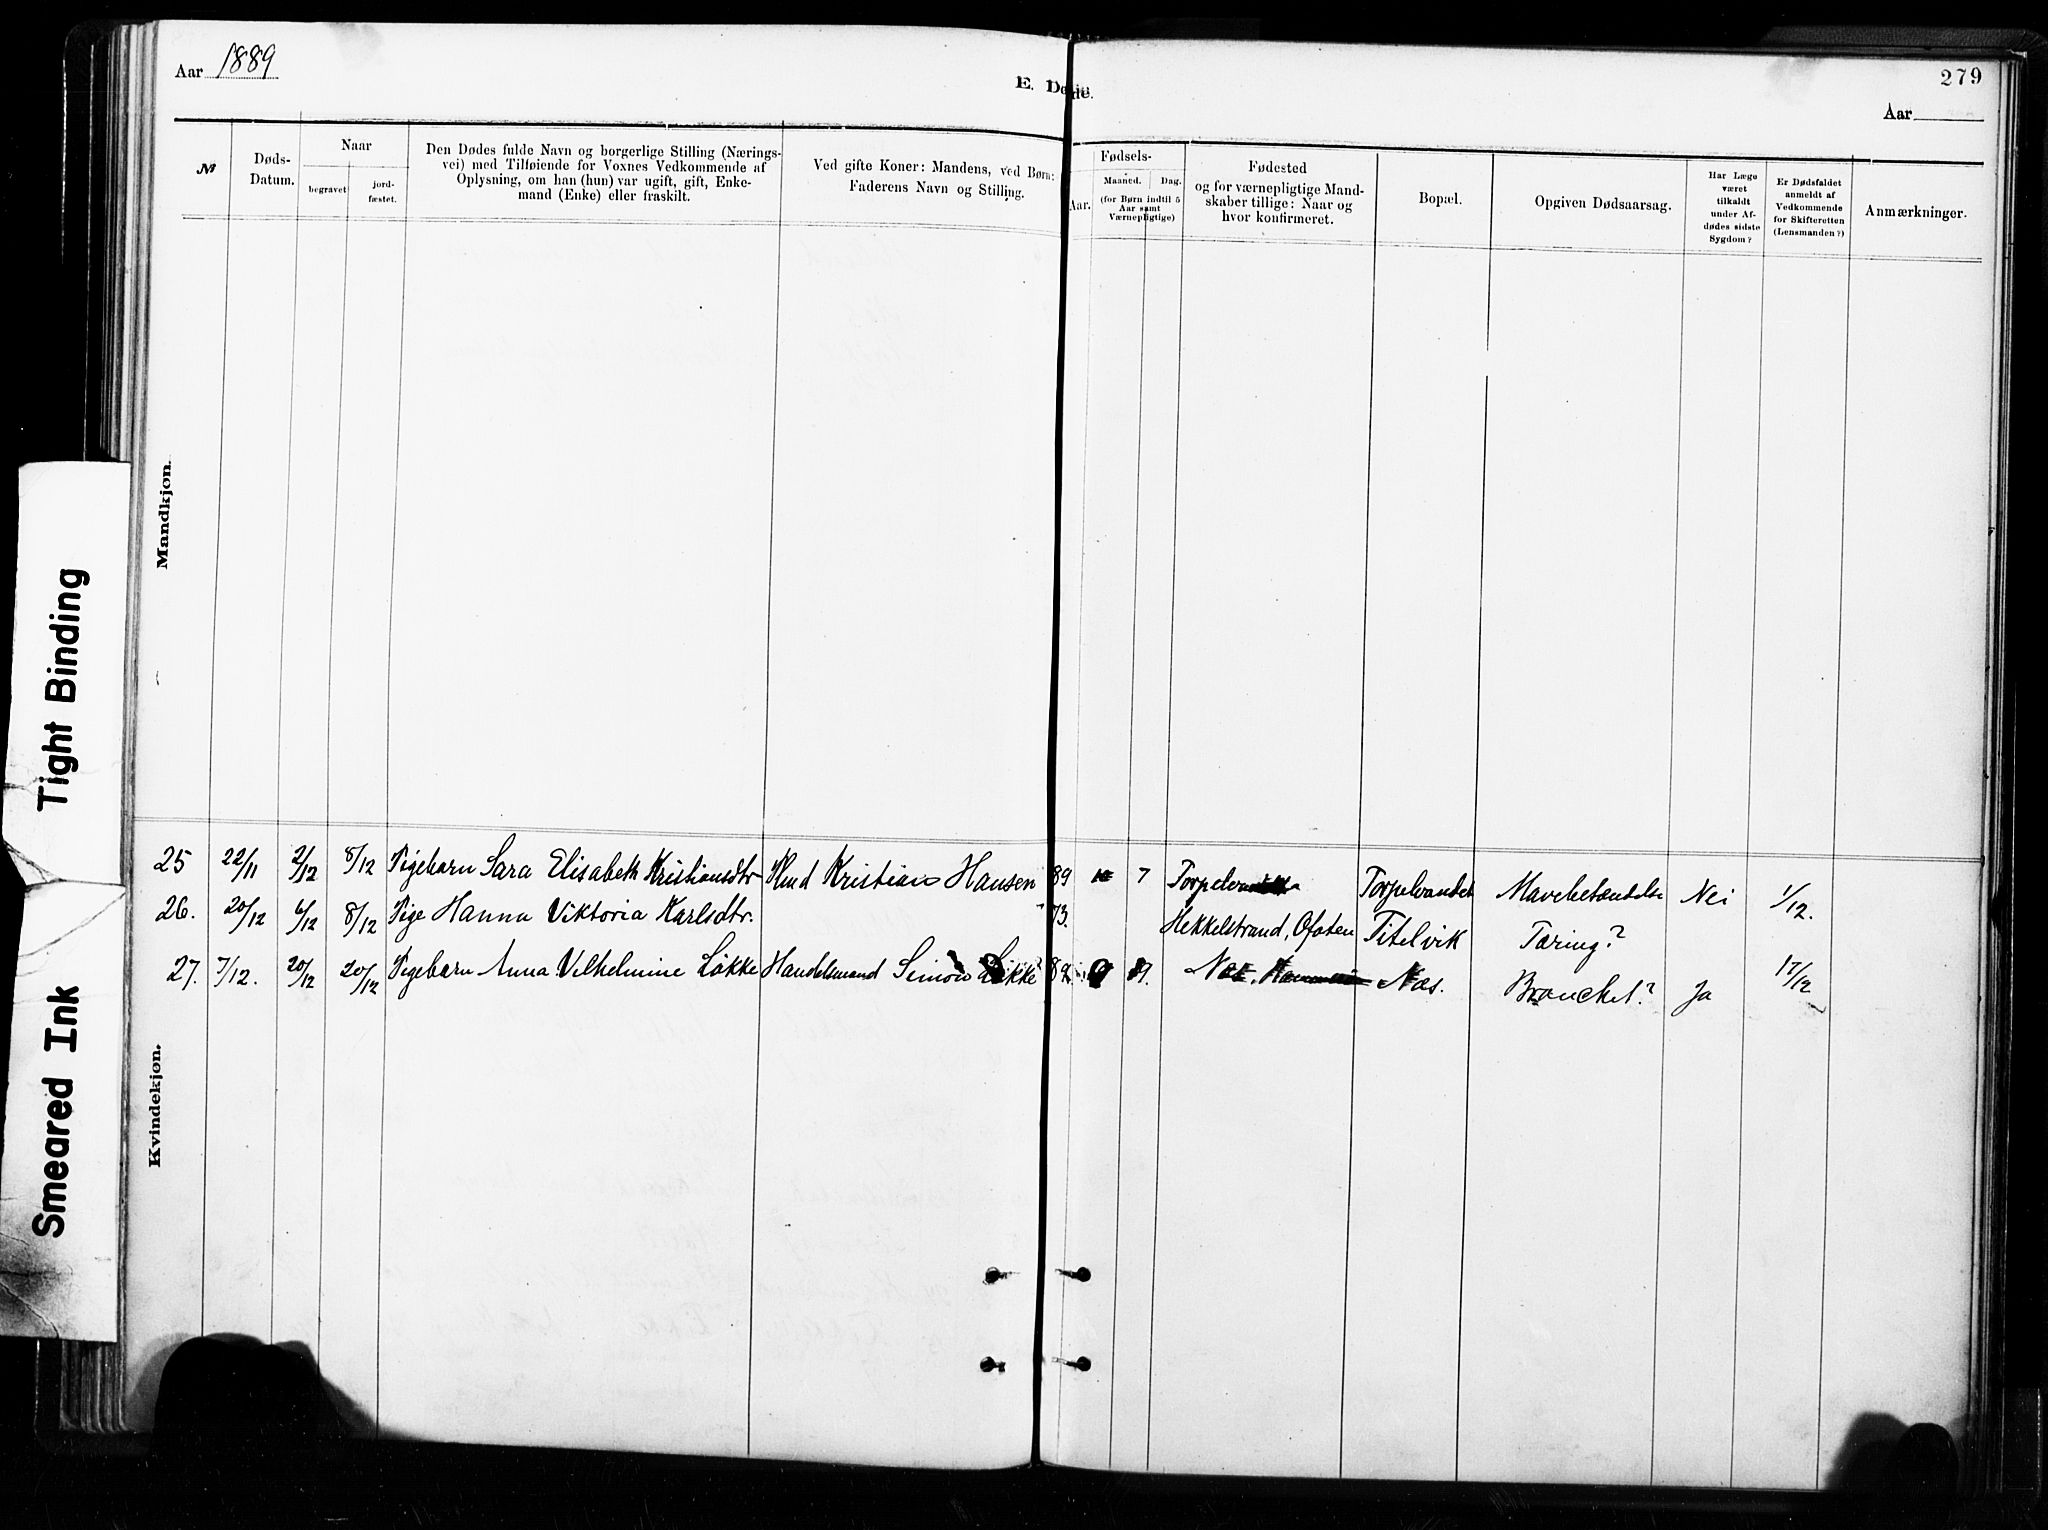 Aar 1889
E. Døde.
279
Aar
№
Døds-
Datum.
Naar
begravet
jord-
fæstet.
Den Dødes fulde Navn og borgerlige Stilling (Nærings-
vei) med Tilføiende for Voxnes Vedkommende af
Oplysning, om han (hun) var ugift, gift, Enke-
mand (Enke) eller fraskilt.
Ved gifte Koner: Mandens, ved Børn:
Faderens Navn og Stilling.
Fødsels-
Aar.
Maaned.
Dag.
(for Børn indtil 5
Aar samt
Værnepligtige)
Fødested
og for værnepligtige Mand-
skaber tillige: Naar og
hvor konfirmeret.
Bopæl.
Opgiven Dødsaarsag.
Har Læge
været
tilkaldt
under Af-
dødes sidste
Sygdom?
Er Dødsfaldet
anmeldt af
Vedkommende
for Skifteretten
(Lensmanden?)
Anmærkninger.
Mandkjøn.
Tight Binding
Smeared Ink
Kvindekjøn.
25 22/11 2/12 8/12 Pigebarn Sara Elisabeth Kristiansdtr Kristian Hansen 89 7 Torpelvandet Mavebetændelse Nei 1/12.
26. 20/12 6/12 8/12 Pige Hanna Viktoria Karlsdtr. 73. Hekkelstrand, Ofoten Titelvik Tæring?
27. 7/12. 20/12 20/12 Pigebarn Anna Vilhelmine Løkke Handelsmand Simon Løkke Næs. Næs. Bronchet? Ja 17/12